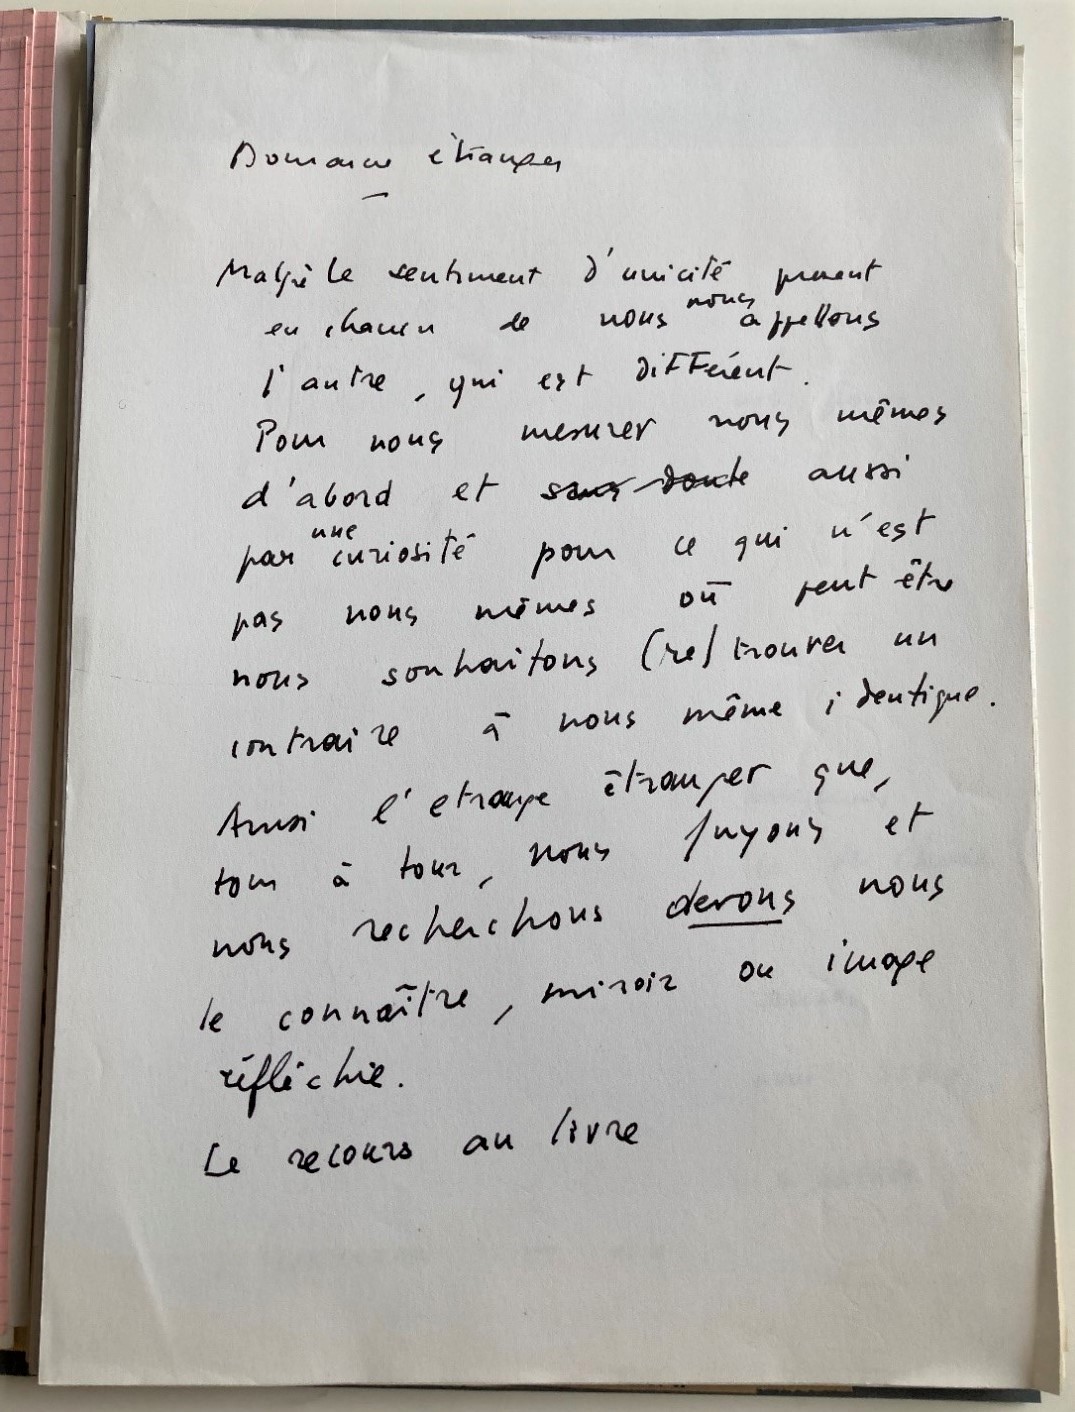 Domaine étranger
Malgré le sentiment d'unicité présent
en chacun de nous nous appellons
l'autre, qui est différent.
Pour nous mesurer nous mêmes
d'abord et sans doute aussi
par une curiosité pour ce qui n'est
pas nous mêmes où peut être
nous souhaitons (re)trouver un
contraire à nous même identique.
Ainsi l'etrange étranger que,
tour à tour, nous fuyons et
nous recherchons devons nous
le connaître, miroir ou image
réfléchie.
Le recours au livre